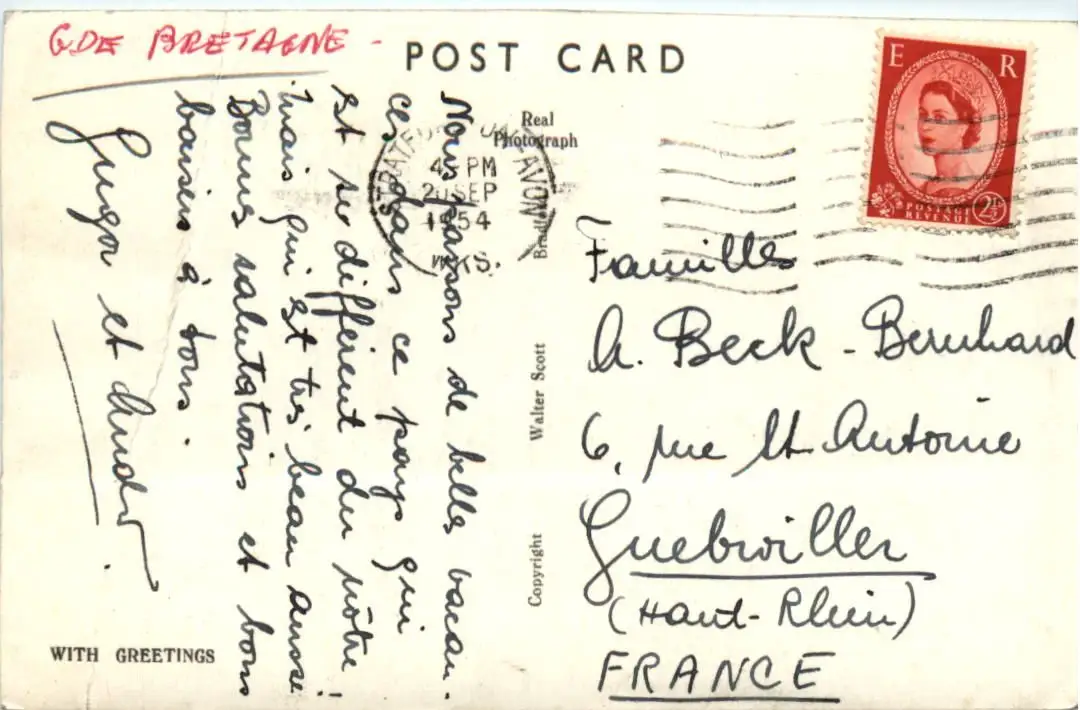 GDE BRETAGNE -
POST CARD
E R
POSTAGE
REVENUE
2½D
Real
Photograph
STRATFORD-UPON-AVON
PM
SEP
1954
WKS.
Nous passons de belles vacan-
ces dans ce pays qui
est si différent du nôtre
mais qui est très beau aussi.
Bonnes salutations et bons
baisers à tous.
et
Familles
A. Beck - Bernhard
6, rue St Antoine
Guebwiller
(Haut-Rhin)
FRANCE
Copyright Walter Scott
WITH GREETINGS